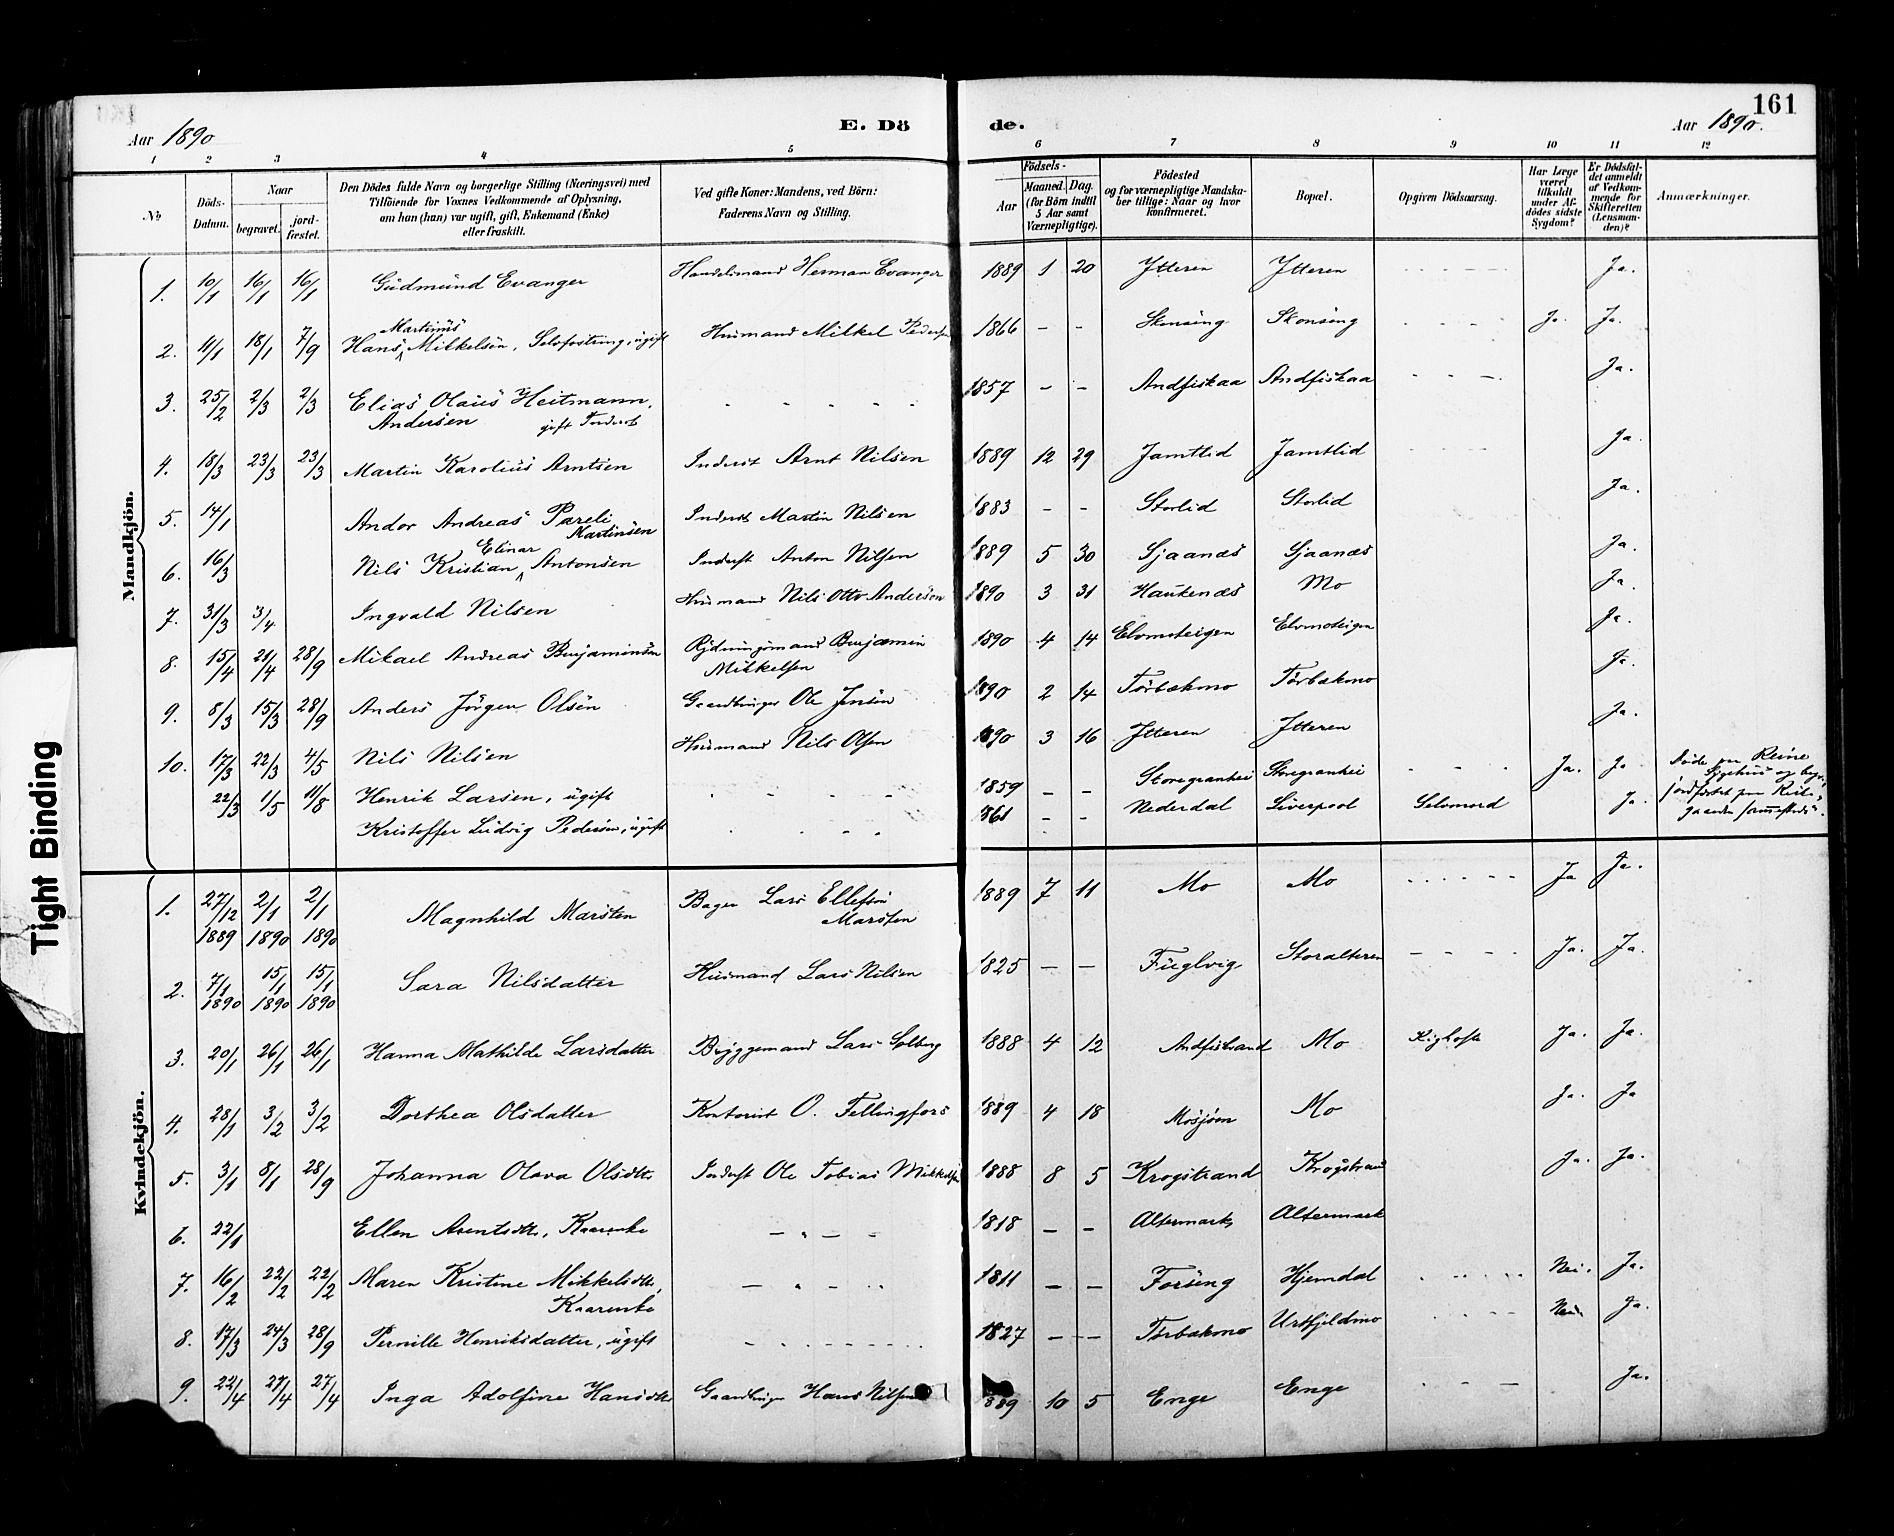 161
Aar 1890 E. Dö de. Aar 1890.
1 2 3 4 5 6 7 8 9 10 11 12
No
Döds-Datum.
Naar
begravet. jord-fæstet.
Den Dödes fulde Navn og borgerlige Stilling (Næringsvei) med
Tilföiende for Voxnes Vedkommende af Oplysning,
om han (hun) var ugift, gift, Enkemand (Enke)
eller fraskilt.
Ved gifte Koner: Mandens, ved Börn:
Faderens Navn og Stilling.
Födsels-
Aar Maaned. Dag.
(for Börn indtil
5 Aar samt
Værnepligtige).
Födested
og for værnepligtige Mandska-
ber tillige: Naar og hvor
konfirmeret.
Bopæl.
Opgiven Dödsaarsag.
Har Læge
været
tilkaldt
under Af-
dödes sidste
Sygdom?
Er Dödsfal-
det anmeldt
af Vedkom-
mende for
Skifteretten
(Lensman-
den)?
Anmærkninger.
Mandkjön.
1. 10/1 16/1 16/1 Gudmund Evanger Handelsmand Herman Evanger 1889 1 20 Ytteren Ytteren Ja.
2. 11/1 18/1 7/9 Hans Martinus Mikkelsen, Selvfostring, ugift Husmand Mikkel Pedersen 1866 - - Skonseng Skonseng Ja. Ja.
3. 25/2 2/3 2/3 Elias Olaus Heitmann - - - - - 1857 - - Andfiskaa Andfiskaa - - - Ja.
Andersen gift Inderst
4. 18/3 23/3 23/3 Martin Karolius Arntsen Inderst Arnt Nilsen 1889 12 29 Jamtlid Jamtlid Ja.
5. 14/1 Andor Andreas Pareli Martinsen Inderst Martin Nilsen 1883 - - Storlid Storlid Ja.
6. 16/3 Nils Kristian Elinar Antonsen Inderst Anton Nilsen 1889 5 30 Sjaanæs Sjaanæs Ja.
7. 31/3 3/4 Ingvald Nilsen Husmand Nils Otto Andersen 1890 3 31 Haukenæs Mo Ja.
8. 15/4 21/4 28/9 Mikael Andreas Benjaminsen Rydningsmand Benjamin Mikkelsen 1890 4 14 Elvmoteigen Elvmoteigen Ja.
9. 8/3 15/3 28/9 Anders Jörgen Olsen Gaardbruger Ole Jensen 1890 2 14 Torbækmo Torbækmo Ja.
10. 17/3 22/3 4/5 Nils Nilsen Husmand Nils Olsen 1890 3 16 Ytteren Ytteren Ja.
22/3 1/5 11/8 Henrik Larsen, ugift 1859 - - Storegranhei Storegranhei - - - Ja. Ja. Döde paa Reine
Sygehus og begr.,
Kristoffer Ludvig Pedersen, ugift 1861 - - Nederdal Liverpool Selvmord Ja.
Kvindekjön.
1. 27/12 1889 2/1 1890 2/1 1890 Magnhild Marsten Bager Lars Ellefsen Marsten 1889 7 11 Mo Mo Ja Ja.
2. 7/1 1890 15/1 1890 15/1 1890 Sara Nilsdatter Husmand Lars Nilsen 1825 - - Fuglvig Storalteren - - - - Ja. Ja.
3. 20/1 26/1 26/1 Hanna Mathilde Larsdatter Bryggemand Lars Solberg 1888 4 12 Andfistrand Mo Kighoste Ja. Ja.
4. 28/1 3/2 3/2 Dorthea Olsdatter Kontorist O. Fellingfors 1889 4 18 Mosjöen Mo Ja. Ja
5. 3/1 8/1 28/9 Johanna Olava Olsdtr Inderst Ole Tobias Mikkelsen 1888 8 5 Krogstrand Krogstrand Ja. Ja.
6. 22/1 Ellen Arentsdtr, Kaarenke 1818 - - Altermark Altermark
7. 16/2 22/2 22/2 Maren Kristine Mikkelsdtr, 1811 - - Forseng Hjemdal Nei. Ja.
Kaarenke
8. 17/3 24/3 28/9 Pernille Henriksdatter, ugift 1827 - - Torbækmo Urtfjeldmo Nei. Ja.
9. 22/4 27/4 27/4 Inga Adolfine Hansdtr Gaardbruger Hans Nilsen 889 10 5 Enge Enge Ja.
Tight Binding